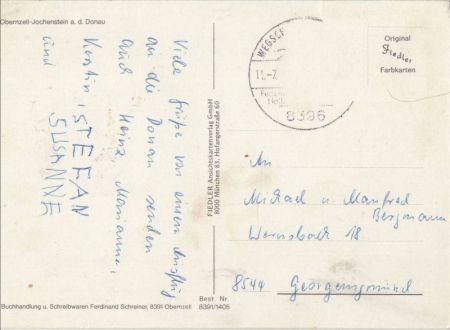 Obernzell-Jochenstein a. d. Donau
Viele Grüße von einem Ausflug
an die Donau senden
Euch Heinz, Marianne,
Kerstin, STEFAN
und SUSANNE
Buchhandlung u. Schreibwaren Ferdinand Schreiner, 8391 Obernzell
FIEDLER Ansichtskartenverlag GmbH
8000 München 83, Hofangerstraße 60
Best. Nr.
8391/1405
WEGSC
11.-7.
8396
Original
Fiedler
Farbkarten
An
Michael u. Manfred
Bergmann
Wernsbach 18
8544 Georgensgmünd